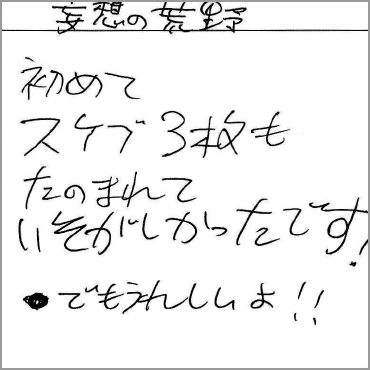 妄想の荒野
初めて
スケブ3枚も
たのまれて
いそがしかったです!
●でもうれしいよ!!